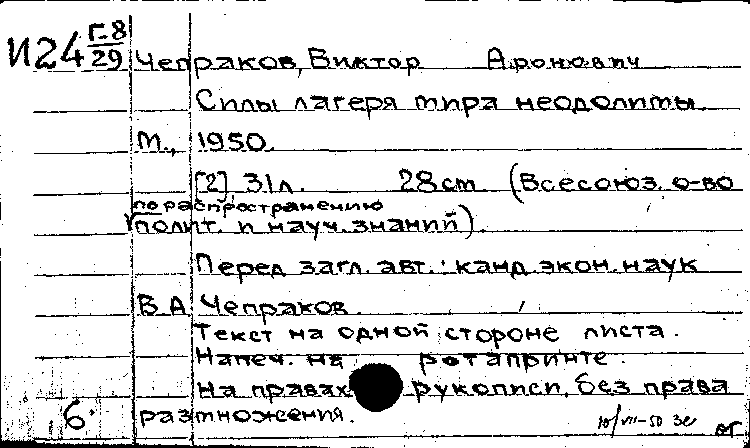 И24 Г-8/29 Чепраков, Виктор Аронович
Силы лагеря мира неодолимы.
М., 1950.
[2] 31л. 28cm (Всесоюз. о-во
по распространению
полит. и науч. знаний).
Перед загл. авт.: канд. экон. наук
В.А Чепраков.
Текст на одной стороне листа.
Напеч. на ротапринте.
На правах рукописи, без права
6. размножения.
10/VII-50